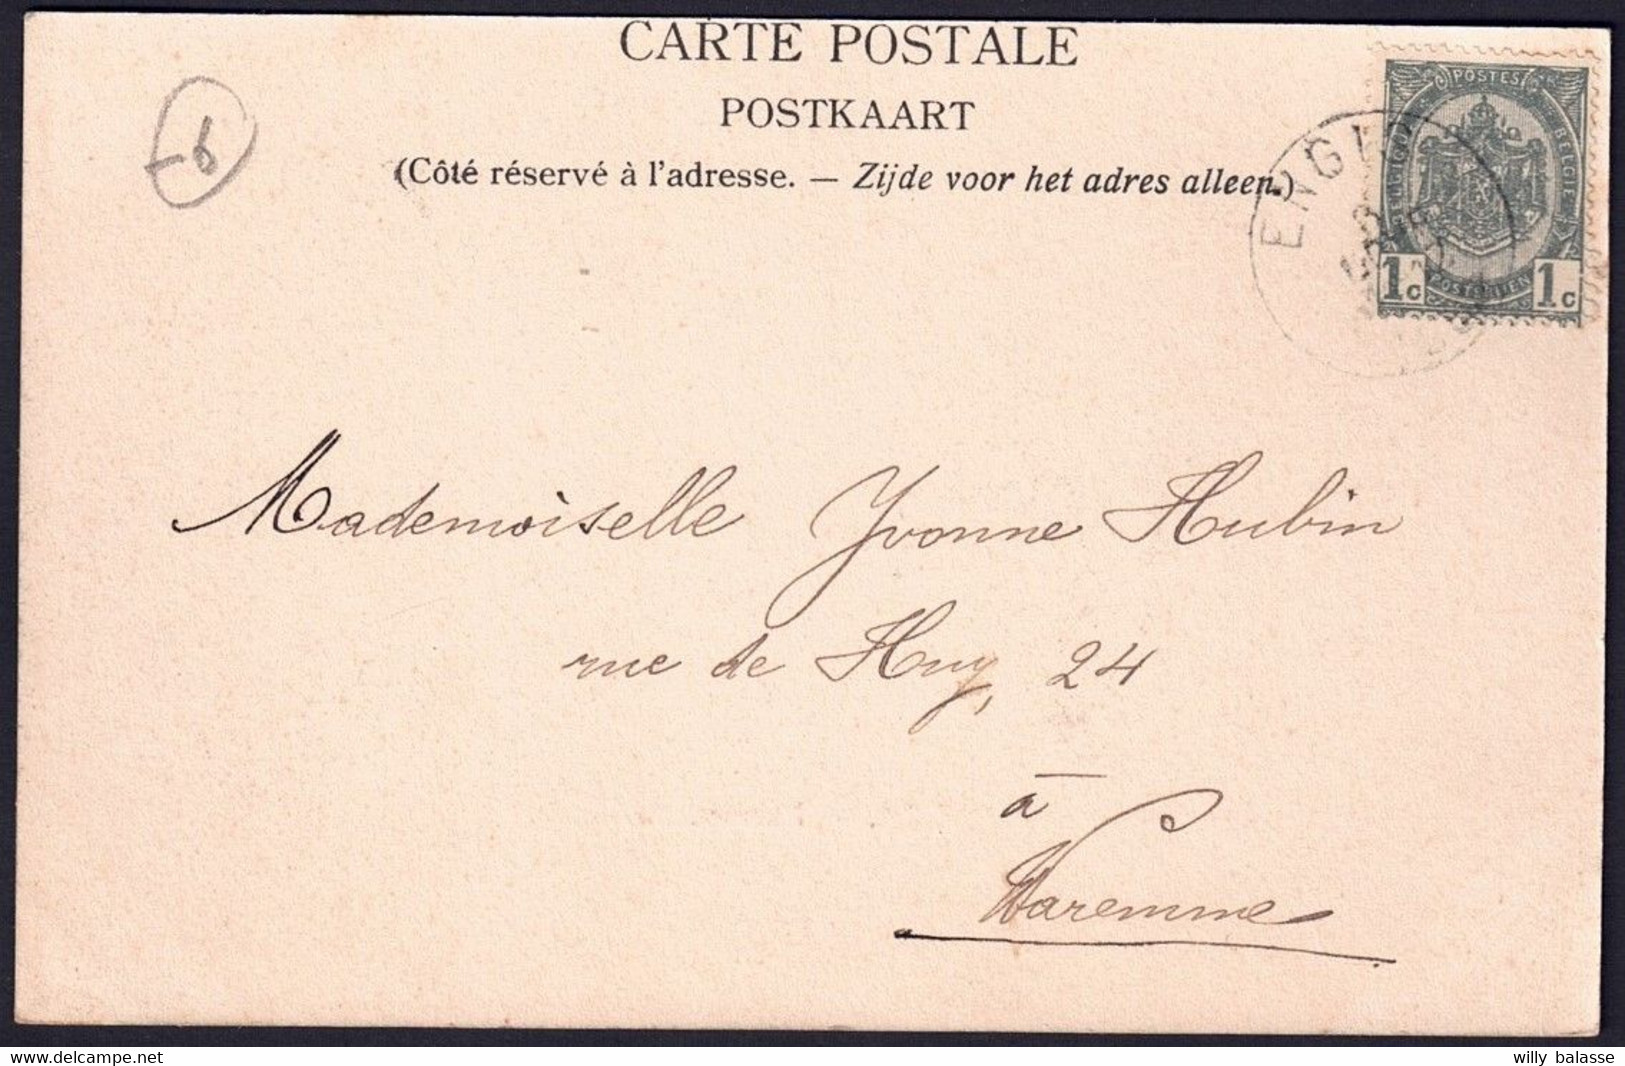 CARTE POSTALE
POSTKAART
(Côté réservé à l'adresse. — Zijde voor het adres alleen.)
-6
ENGIS
POSTES
BELGIQUE
BELGIË
POSTERIJEN
1c 1c
Mademoiselle Yvonne Hubin
rue de Huy, 24
à
Waremme
willy balasse